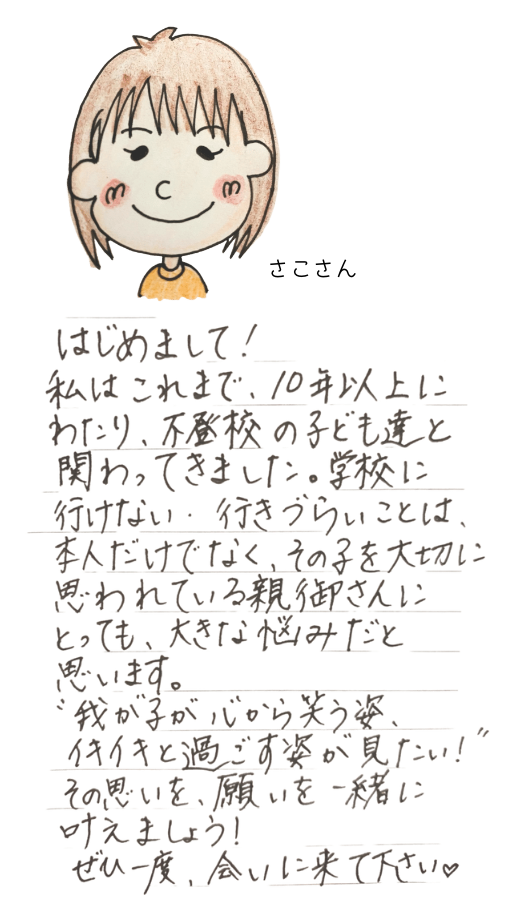 さこさん
はじめまして！
私はこれまで、10年以上に
わたり、不登校の子ども達と
関わってきました。学校に
行けない・行きづらいことは、
本人だけでなく、その子を大切に
思われている親御さんに
とっても、大きな悩みだと
思います。
“我が子が心から笑う姿、
イキイキと過ごす姿が見たい！”
その思いを、願いを一緒に
叶えましょう！
ぜひ一度、会いに来て下さい♡